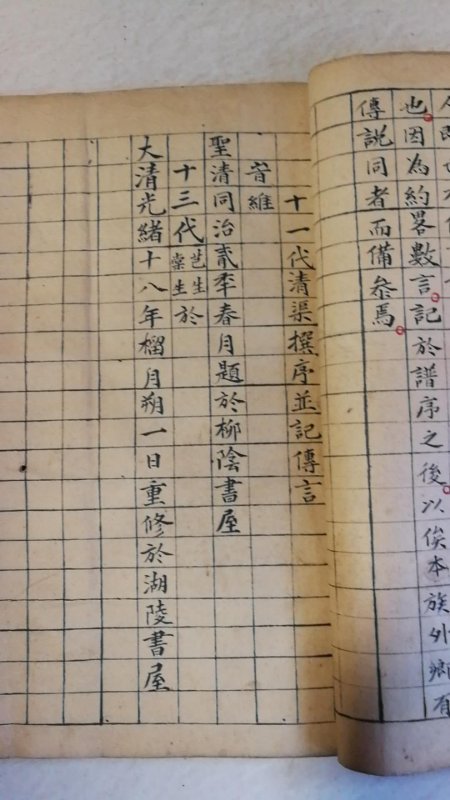 也因為約畧數言記於譜序之後以俟本族外鄉有
傳說同者而備叅焉
十一代清渠撰序並記傳言
旹維
聖清同治貳季春月題於柳陰書屋
十三代芑生棠生於
大清光緒十八年榴月朔一日重修於湖陵書屋